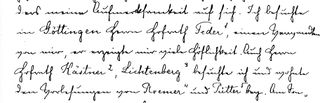 dens meine Aufmerksamkeit auf sich. Ich besuchte
in Göttingen Herrn Hofrath Feder¹, einen Verwandten
von mir, er erzeigte mir viele Höflichkeit. Auch Herrn
Hofrath Kästner², Lichtenberg³ besuchte ich und wohnte
den Vorlesungen von Roemer⁴ und Pütter⁵ bey. Am